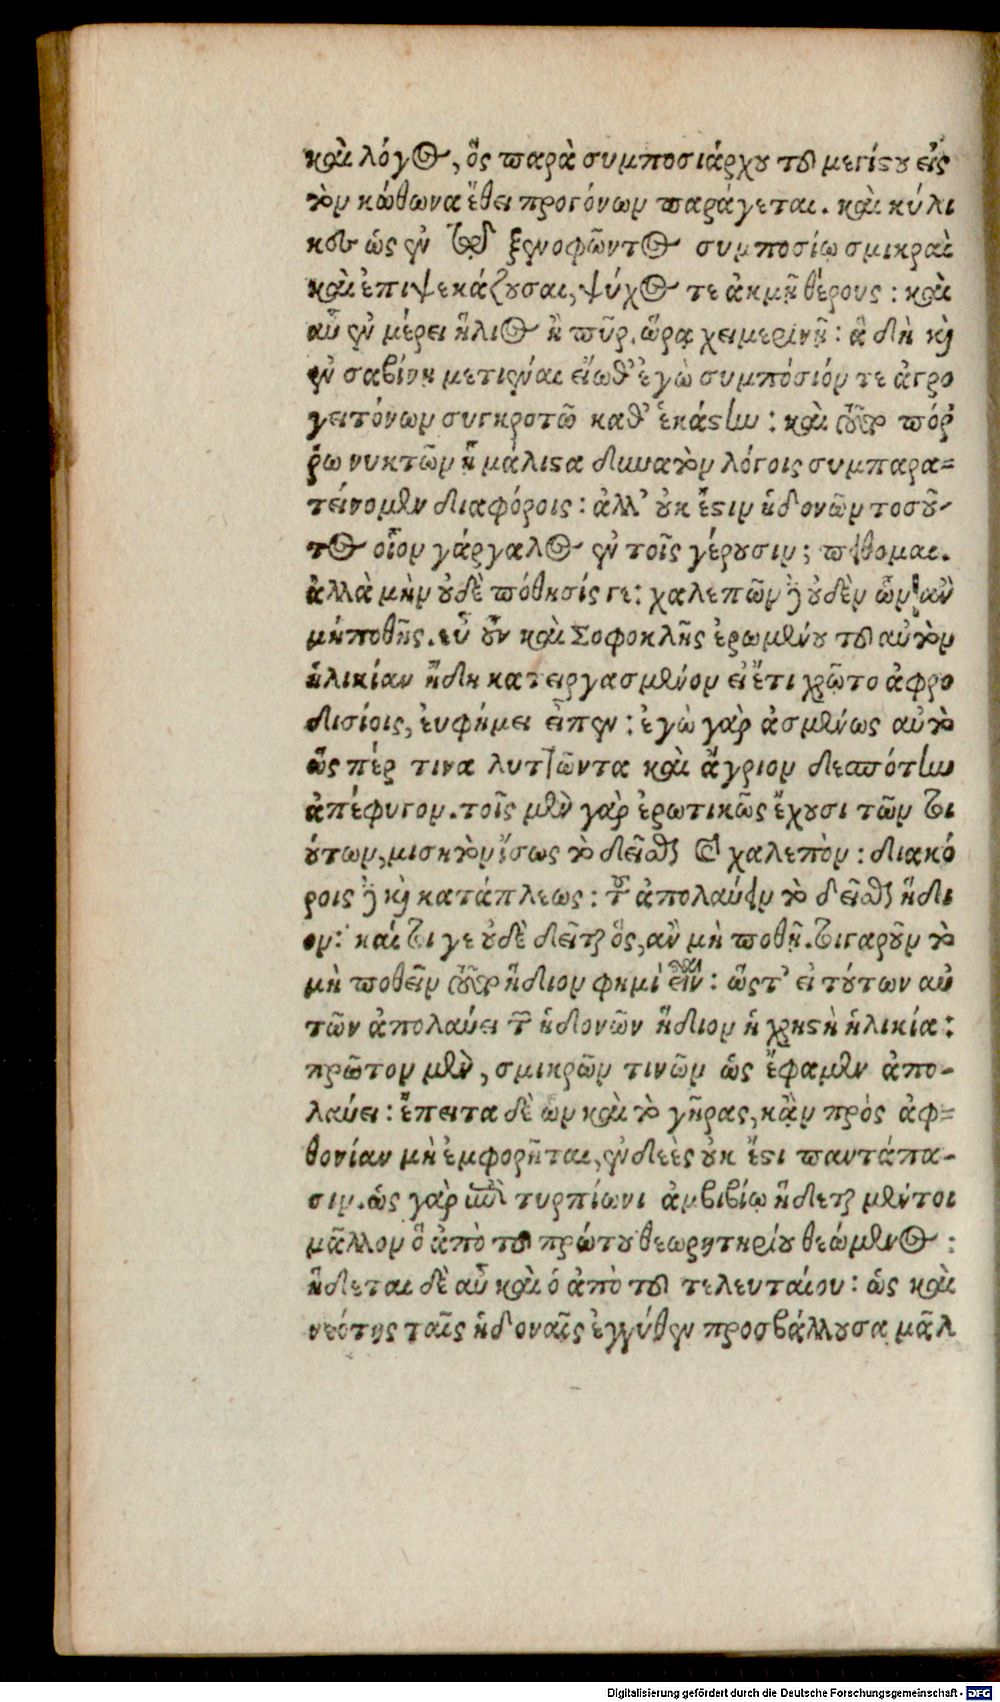 καὶ λόγος, ὃς παρὰ συμποσιάρχου τοῦ μεγίστου εἰς
τὸν κώθωνα ἔθει προγόνων παράγεται. καὶ κύλι
κες ὡς ἐν τῷ ξενοφῶντος συμποσίῳ σμικραὶ
καὶ ἐπιψεκάζουσαι, ψύχος τε ἀκμῇ θέρους: καὶ
αὖ ἐν μέρει ἥλιος ἢ πῦρ, ὥρᾳ χειμερινῇ: ἃ δὴ κὶ
ἐν σαβίνῃ μετιέναι εἴωθ' ἐγὼ συμπόσιόν τε ἀγρο
γειτόνων συγκροτῶ καθ' ἑκάστην: καὶ ὅπερ πόῤ
ῥω νυκτῶν ᾗ μάλιστα δυνατὸν λόγοις συμπαρα=
τείνομεν διαφόροις: ἀλλ' οὐκ ἔστιν ἡδονῶν τοσοῦ-
τος οἷον γάργαλος ἐν τοῖς γέρουσιν; πείθομαι.
ἀλλὰ μὴν οὐδὲ πόθησίς γε: χαλεπῶν δὲ οὐδὲν ὧν ἂν
μὴ ποθῇς. εὖ οὖν καὶ Σοφοκλῆς ἐρωμένου τοῦ αὐτὸν
ἡλικίαν ἤδη κατειργασμένον εἰ ἔτι χρῷτο ἀφρο
δισίοις, ἐυφήμει εἶπεν: ἐγὼ γὰρ ἀσμένως αὐτὸ
ὥς πέρ τινα λυττῶντα καὶ ἄγριον δεσπότην
ἀπέφυγον. τοῖς μὲν γὰρ ἐρωτικῶς ἔχουσι τῶν τοι
ούτων, μισητὸν ἴσως τὸ δεῖσθαι καὶ χαλεπὸν: διακό
ροις δὲ κὶ κατάπλεως: τοῦ ἀπολαύειν τὸ δεῖσθαι ἥδι
ον: καί τοι γε οὐδὲ δεῖται ὃς, ἂν μὴ ποθῇ. τοιγαροῦν τὸ
μὴ ποθεῖν ὅπερ ἥδιον φημὶ εἶναι: ὥστ' εἰ τούτων αὐ
τῶν ἀπολαύει τῶν ἡδονῶν ἥδιον ἡ χρηστὴ ἡλικία:
πρῶτον μὲν, σμικρῶν τινῶν ὡς ἔφαμεν ἀπο-
λαύει: ἔπειτα δὲ ὧν καὶ τὸ γῆρας, κἂν πρὸς ἀφ=
θονίαν μὴ ἐμφορῆται, ἐνδεὲς οὐκ ἔστι παντάπα-
σιν. ὡς γὰρ ἐπὶ τυρπίωνι ἀμβιβίῳ ἥδεται μέντοι
μᾶλλον ὃ ἀπὸ τοῦ πρώτου θεωρητηρίου θεώμενος:
ἥδεται δὲ αὖ καὶ ὁ ἀπὸ τοῦ τελευταίου: ὡς καὶ
νεότης ταῖς ἡδοναῖς ἐγγύθεν προσβάλλουσα μᾶλ
Digitalisierung gefördert durch die Deutsche Forschungsgemeinschaft - DFG